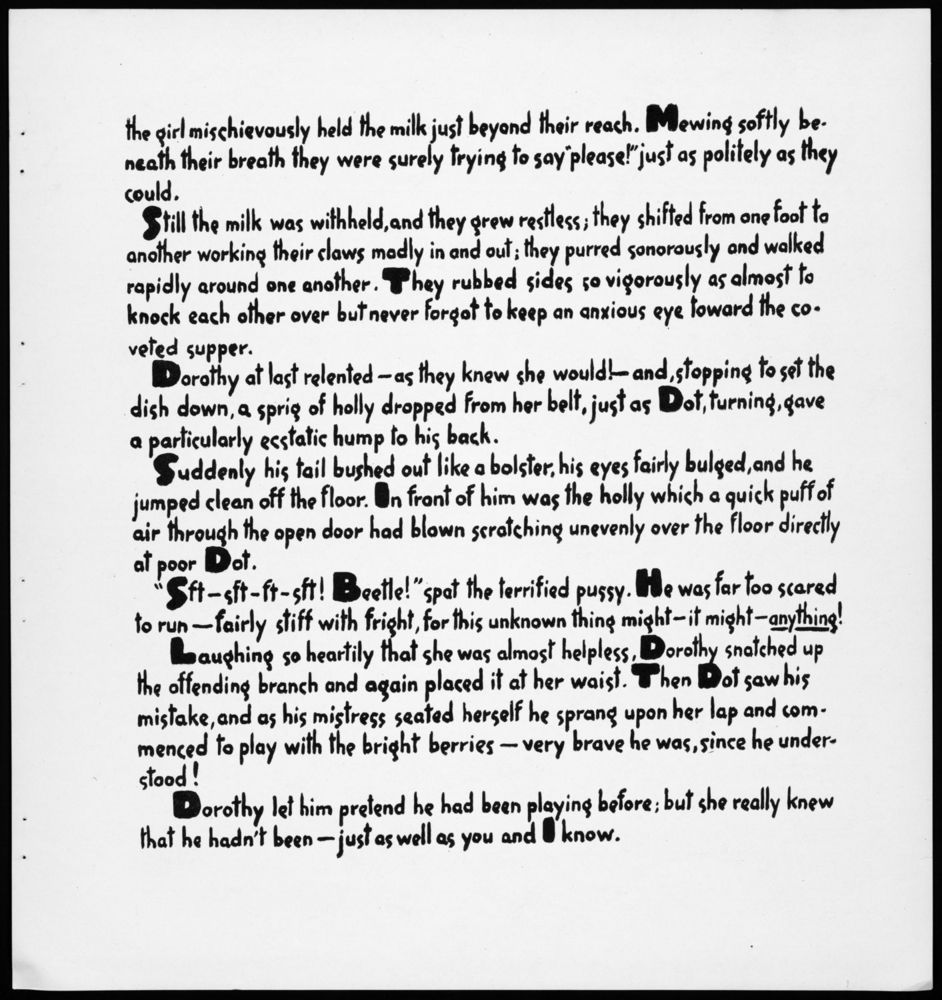 the girl mischievously held the milk just beyond their reach. Mewing softly be-
neath their breath they were surely trying to say "please!" just as politely as they
could.
Still the milk was withheld, and they grew restless; they shifted from one foot to
another working their claws madly in and out; they purred sonorously and walked
rapidly around one another. They rubbed sides so vigorously as almost to
knock each other over but never forgot to keep an anxious eye toward the co-
veted supper.
Dorothy at last relented — as they knew she would! — and, stopping to set the
dish down, a sprig of holly dropped from her belt, just as Dot, turning, gave
a particularly ecstatic hump to his back.
Suddenly his tail bushed out like a bolster, his eyes fairly bulged, and he
jumped clean off the floor. In front of him was the holly which a quick puff of
air through the open door had blown scratching unevenly over the floor directly
at poor Dot.
"Sft — sft - ft - sft! Beetle!" spat the terrified pussy. He was far too scared
to run — fairly stiff with fright, for this unknown thing might — it might — anything!
Laughing so heartily that she was almost helpless, Dorothy snatched up
the offending branch and again placed it at her waist. Then Dot saw his
mistake, and as his mistress seated herself he sprang upon her lap and com-
menced to play with the bright berries — very brave he was, since he under-
stood!
Dorothy let him pretend he had been playing before; but she really knew
that he hadn't been — just as well as you and I know.